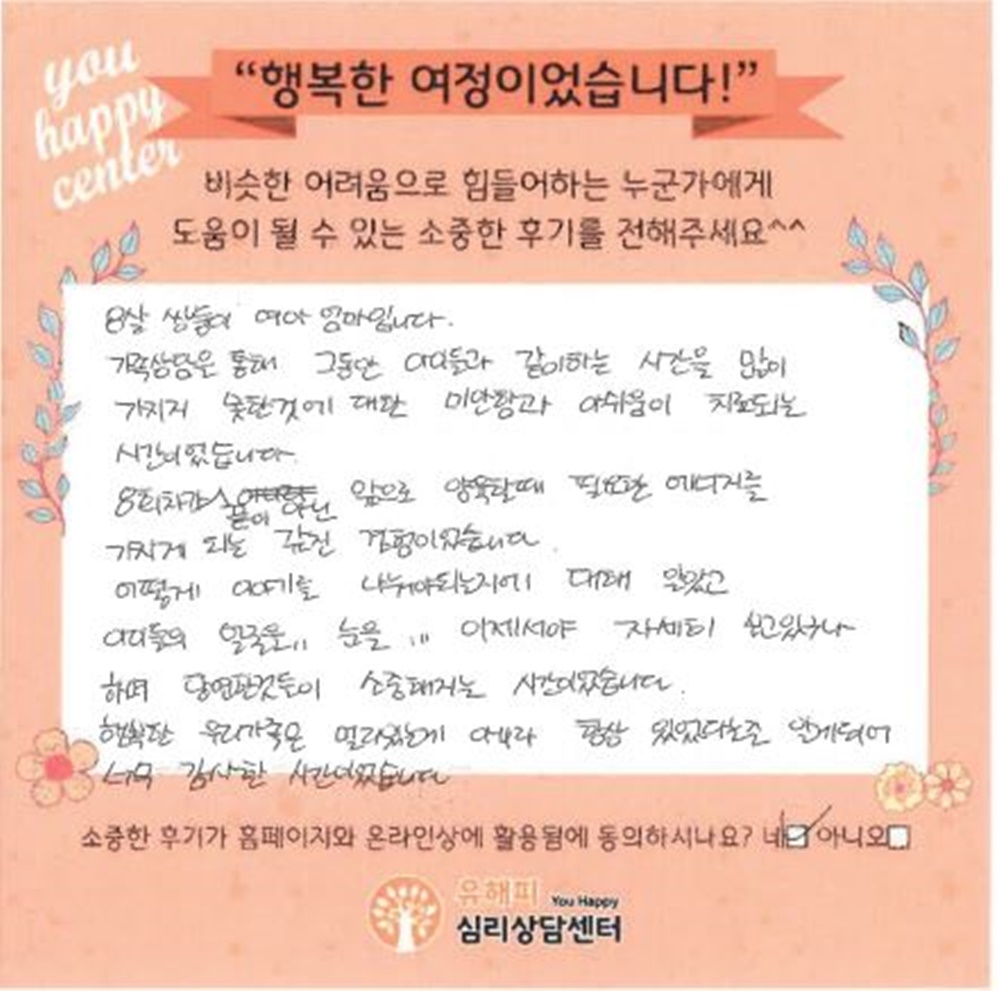 you
happy
center
“행복한 여정이었습니다!”
비슷한 어려움으로 힘들어하는 누군가에게
도움이 될 수 있는 소중한 후기를 전해주세요^^
8살 쌍둥이 여아 엄마입니다.
가족상담은 통해 그동안 아이들과 같이하는 시간을 많이
가지지 못한것에 대한 미안함과 아쉬움이 치료되는
시간이었습니다.
8회차가 끝이 아닌 앞으로 양육할때 필요한 에너지를
가지게 되는 값진 경험이었습니다.
어떻게 이야기를 나눠야되는지에 대해 알았고
아이들의 얼굴을,, 눈을 ,,, 이제서야 자세히 보고있구나
하며 당연한것들이 소중해지는 시간이었습니다.
행복한 우리가족은 멀리있는게 아니라 항상 있었다는걸 알게되어
너무 감사한 시간이었습니다
소중한 후기가 홈페이지와 온라인상에 활용됨에 동의하시나요? 네 아니오
유해피 You Happy
심리상담센터